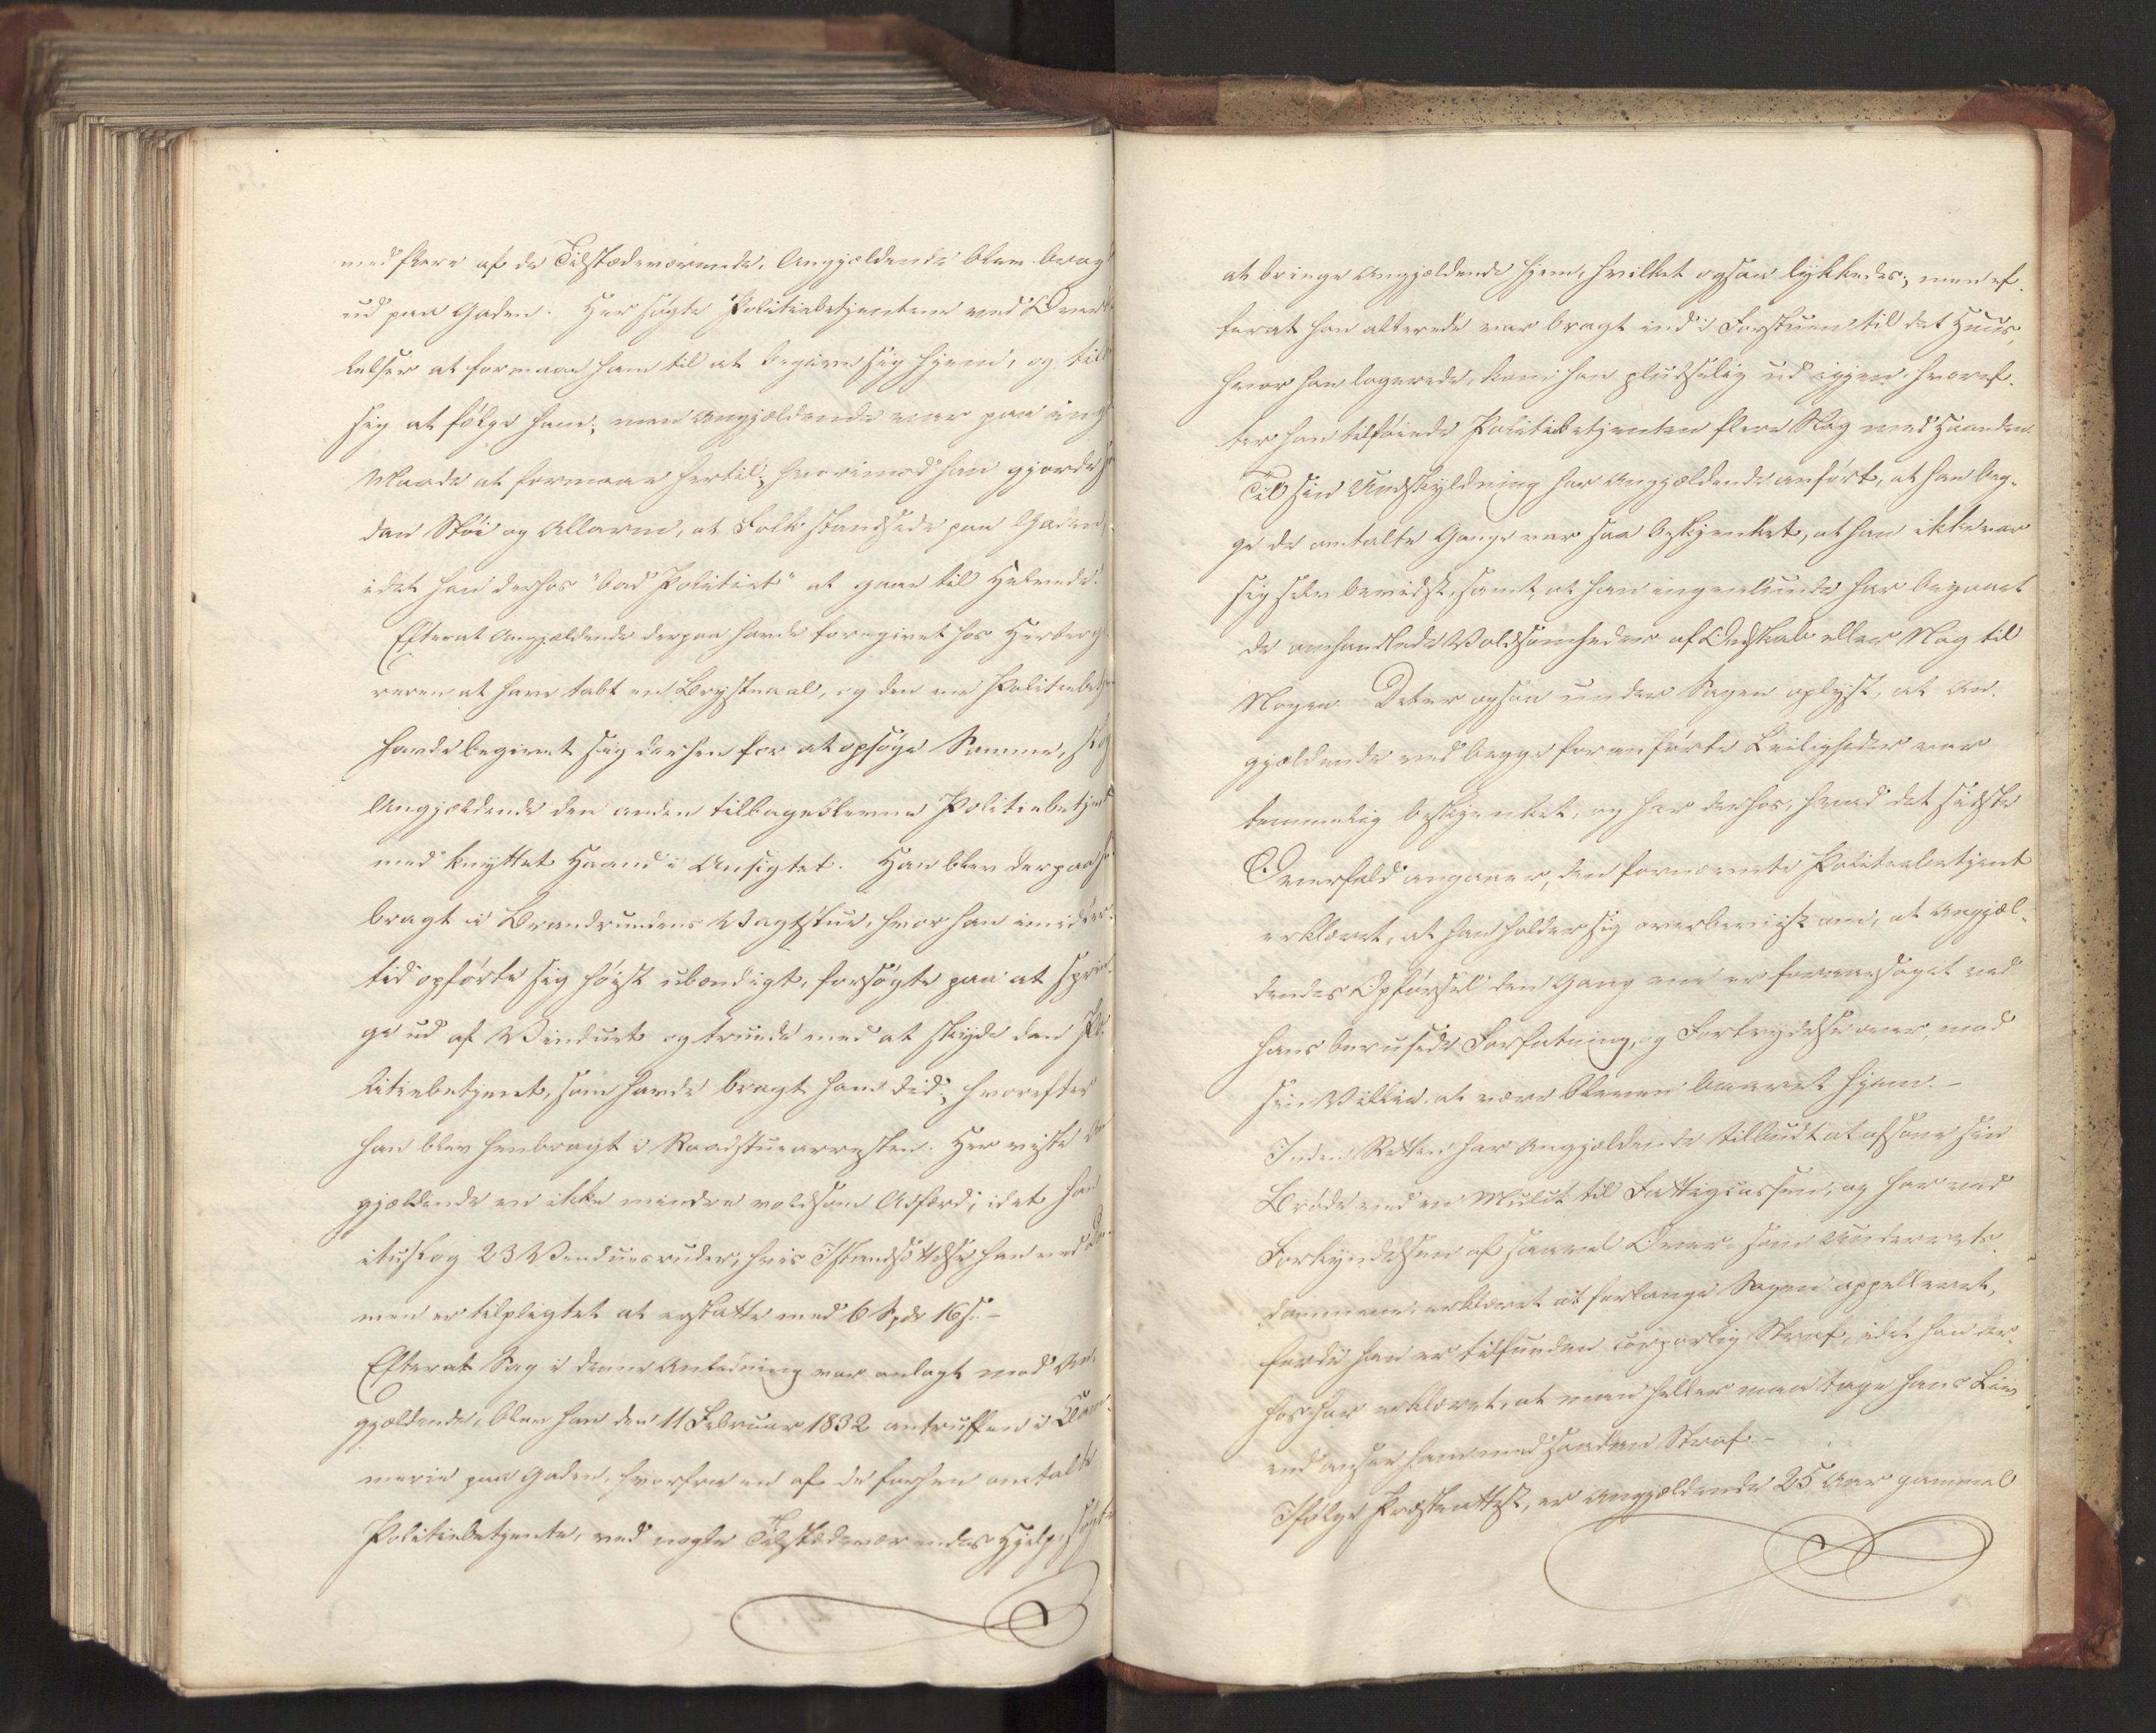 med flere af de Tilstædeværende, Angjældende blev bragt
ud paa Gaden. Her søgte Politiebetjentene ved Overta-
lelser at formaae ham til at begive sig hjem, og tilbød
sig at følge ham; men Angjældende var paa ingen
Maade at formaae hertil; hvorimod han gjorde saa-
dan Støi og Allarm, at Folk standsede paa Gaden,
idet han derhos "bad Politiet" at gaae til Helvede.
Efterat Angjældende derpaa havde foregivet hos Herberge-
reren at have tabt en Brystnaal, og den ene Politiebetjent
havde begivet sig derhen for at opsøge Samme, slog
Angjældende den anden tilbageblevne Politiebetjent
med knyttet Haand i Ansigtet. Han blev derpaa
bragt i Brandvundens Vagtstue, hvor han imidler-
tid opførte sig høist ubændigt, forsøgte paa at sprin-
ge ud af Vinduet og truede med at skyde den Po-
litiebetjent, som havde bragt ham did; hvorefter
han blev henbragt i Raadstuearresten. Her viste An-
gjældende en ikke mindre voldsom Adfærd, idet han
ituslog 23 Vinduesruder, hvis Istandsættelse han ved Dom-
men er tilpligtet at erstatte med 6 Spd 16 s. -
Efterat Sag i denne Anledning var anlagt mod An-
gjældende, blev han den 11 Februar 1832 antruffen i Klam-
merie paa Gaden, hvorfra en af de forhen omtalte
Politiebetjente, ved nogle Tilstedeværendes Hjelp, søgte
at bringe Angjældende hjem, hvilket ogsaa lykkedes; men ef-
terat han allerede var bragt ind i Forstuen til det Huus,
hvor han logerede, kom han pludselig ud igjen, hvoref-
ter han tilføiede Politiebetjenten flere Slag med Haanden.
Til sin Undskyldning har Angjældende anført, at han beg-
ge de omtalte Gange var saa beskjenket, at han ikke var
sig selv bevidst, samt, at han ingenlunde har begaaet
de omhandlede Voldsomheder af Ondskab eller Nag til
Nogen. Det er ogsaa under Sagen oplyst, at An-
gjældende ved begge foranførte Leiligheder var
temmelig beskjenket, og har derhos, hvad det sidste
Overfald angaaer, den fornærmede Politiebetjent
erklæret, at han holder sig overbeviist om, at Angjæl-
dendes Opførsel den Gang ene er foraarsaget ved
hans berusede Forfatning, og Fortrydelse over, mod
sin Villie at være bleven baaret hjem. -
Inden Retten har Angjældende tilbudt at afsone sin
Brøde med en Mulct til Fattigcassen, og har ved
Forkyndelsen af saavel Over- som Underrets-
dommen erklæret at forlange Sagen appelleret,
fordi han er tilfunden corporlig Straf, idet han der-
hos har erklæret, at man heller maa tage hans Liv
end ansee ham med saadan Straf. -
Ifølge Præsteattest, er Angjældende 25 Aar gammel